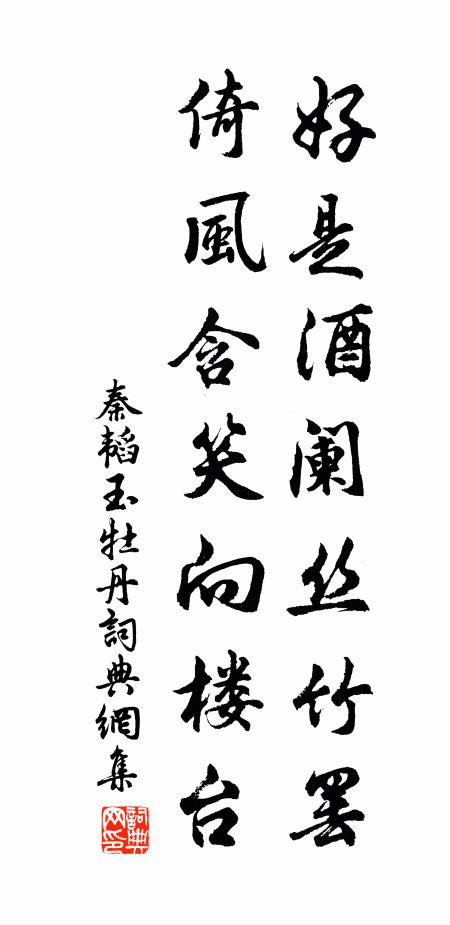 好是酒阑丝竹罢
倚風含笑向楼台
秦韬玉牡丹詞典網集
詞典網印